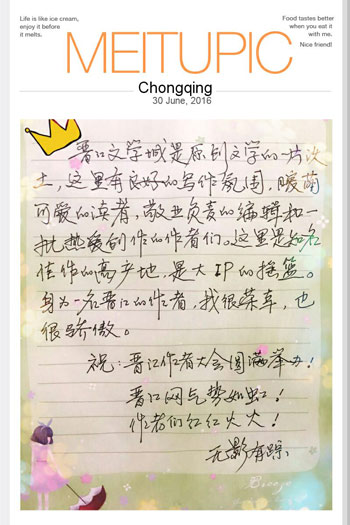 Life is like ice cream,
enjoy it before
it melts.
Food tastes better
when you eat it
with me.
Nice friend!
MEITUPIC
Chongqing
30 June, 2016
晋江文学城是原创文学的一片沃
土，这里有良好的写作氛围，暖萌
可爱的读者，敬业负责的编辑和一
批热爱创作的作者们。这里是知名
佳作的高产地，是大IP的摇篮。
身为一名晋江的作者，我很荣幸，也
很骄傲。
祝：晋江作者大会圆满举办！
晋江网气势如虹！
作者们红红火火！
无影有踪